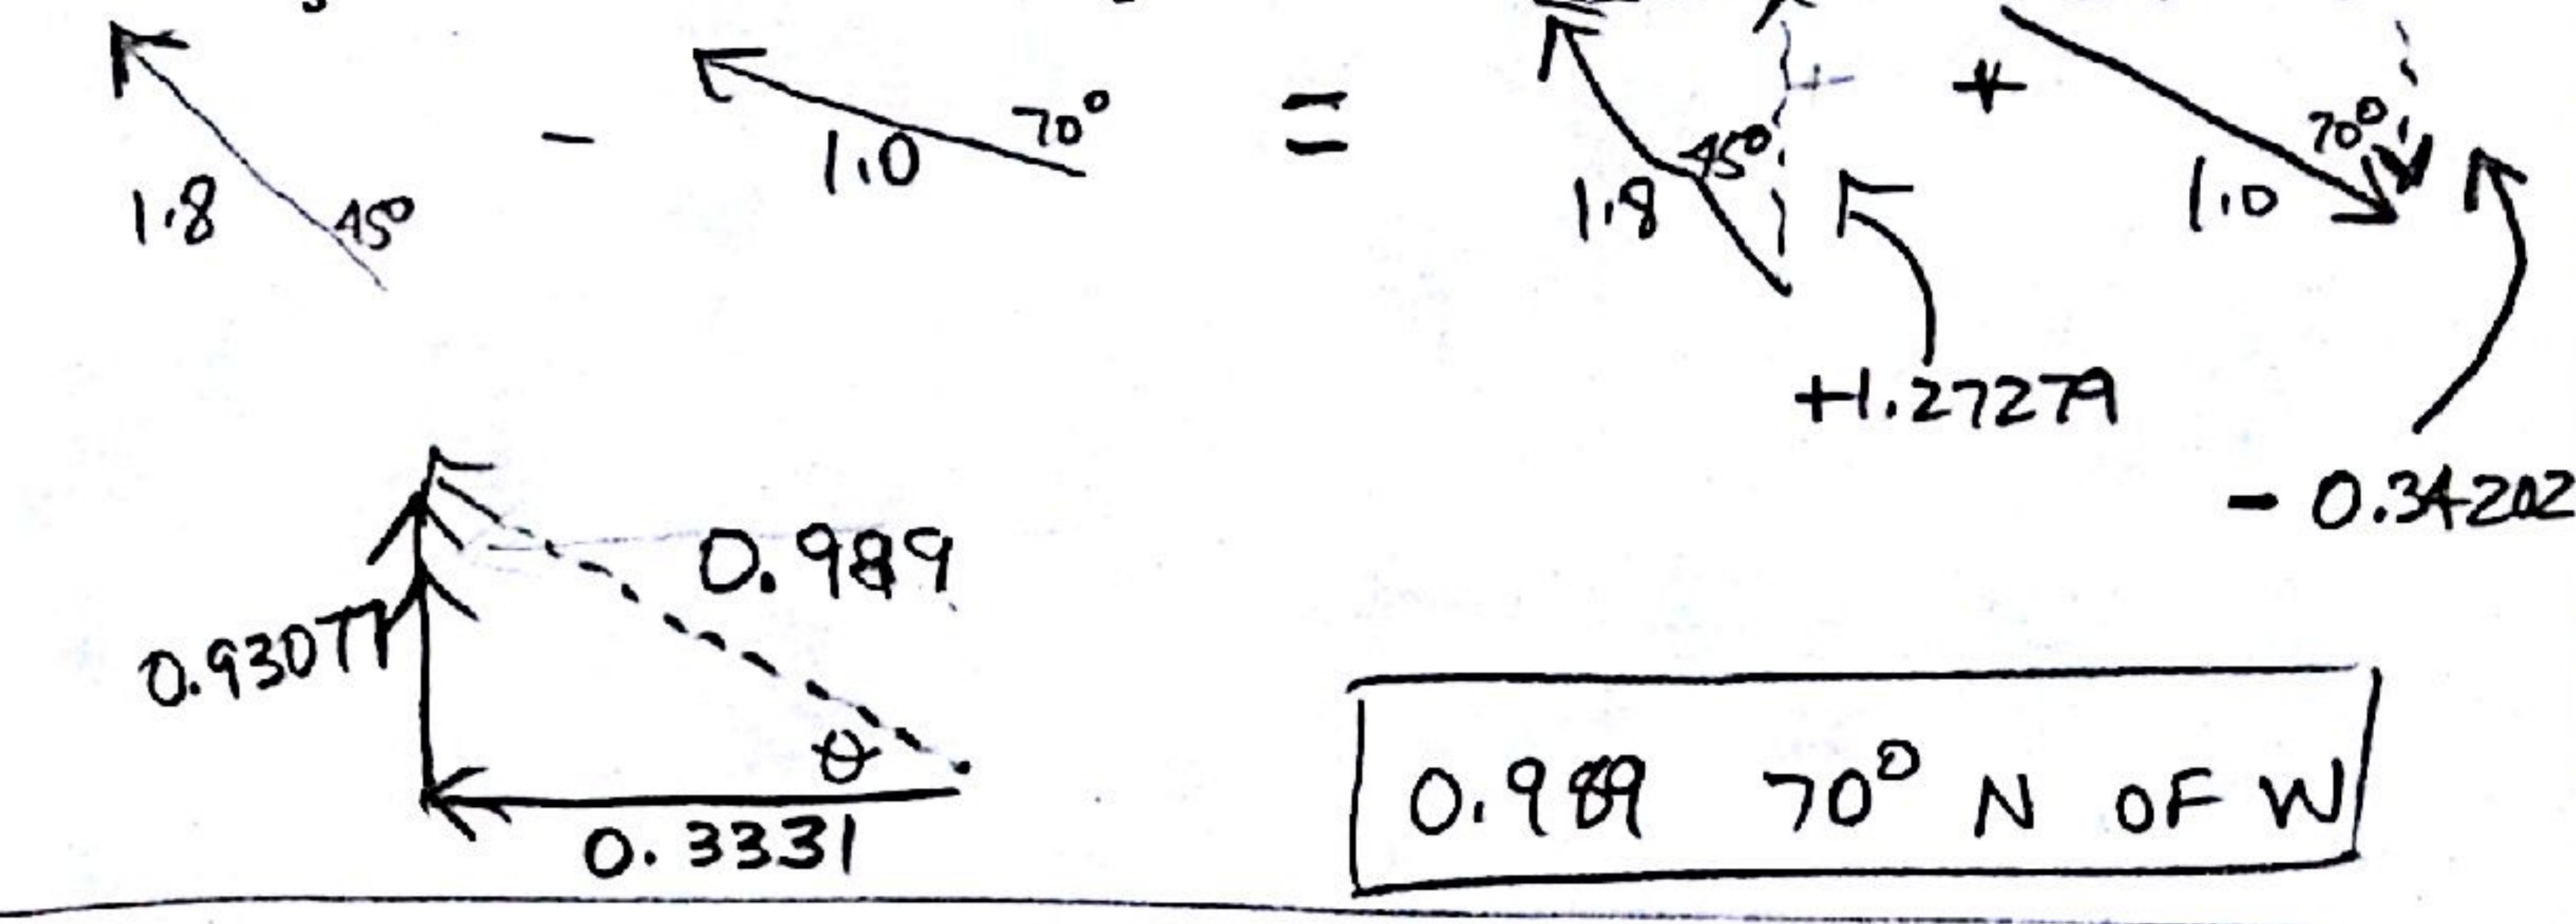 1.8 45° - 1.0 70° = 1.8 45° + 1.0 70°
+1.27279
- 0.34202
0.989
0.93077
θ
0.3331
0.989 70° N OF W